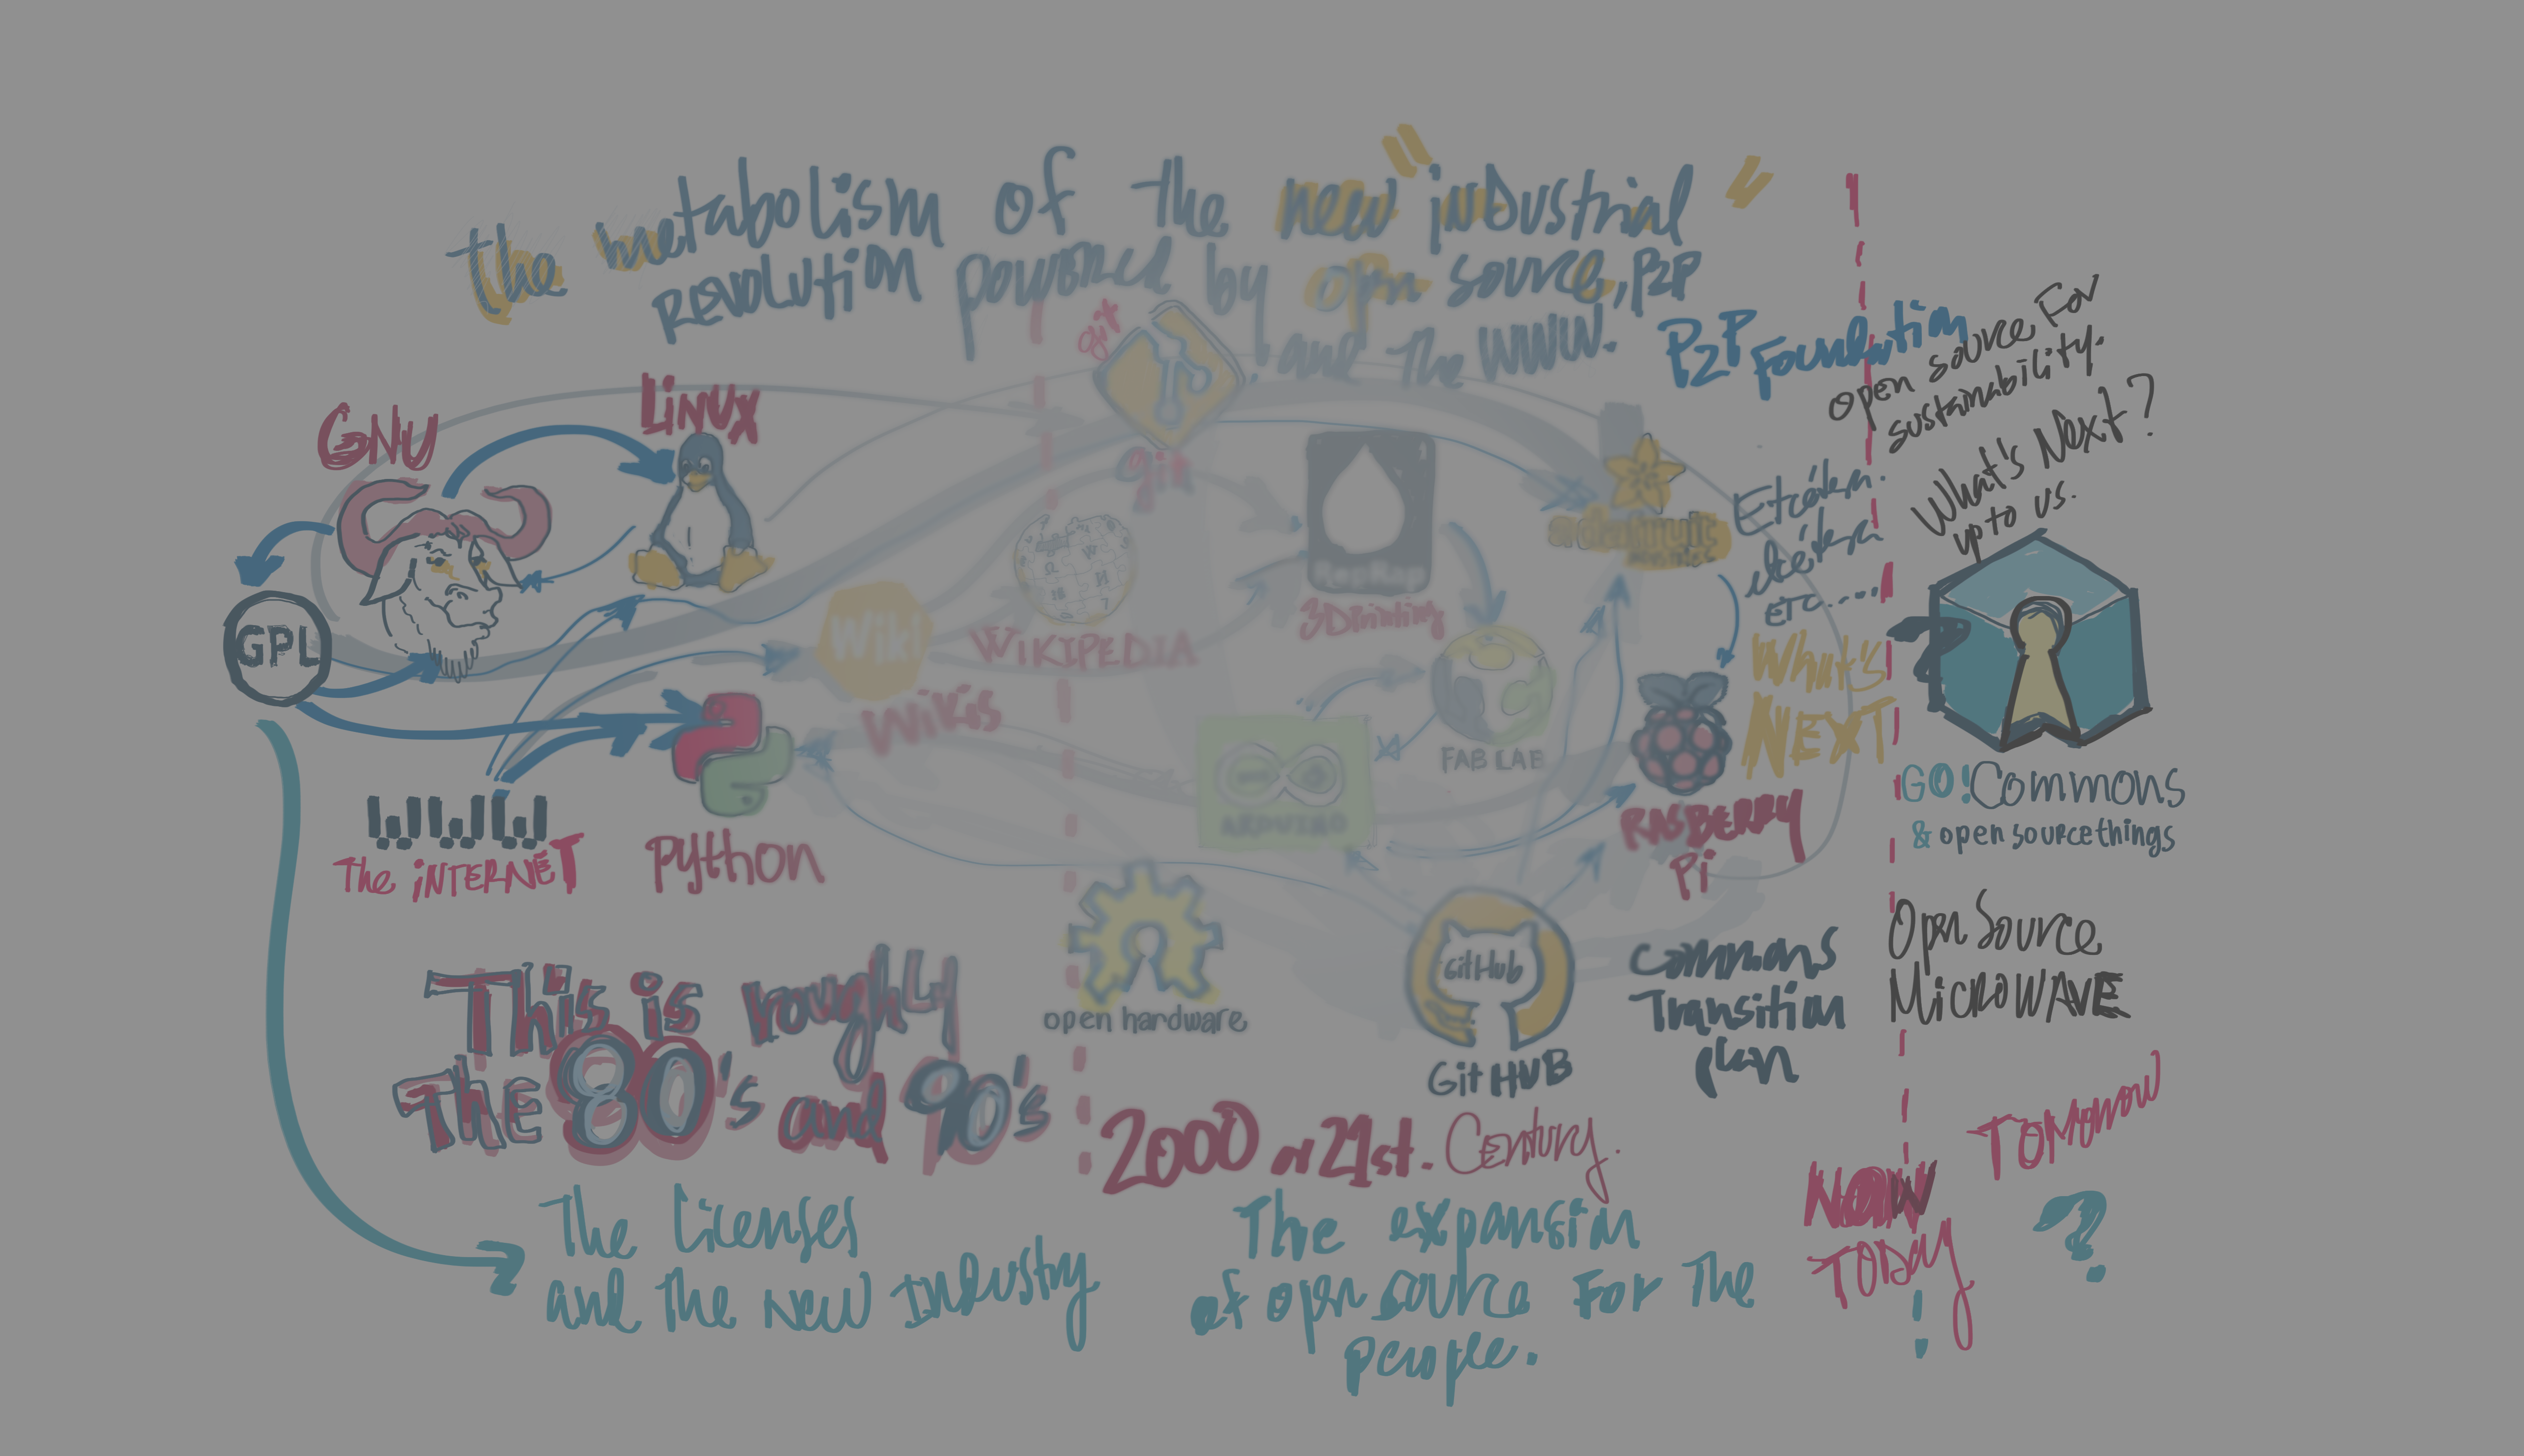 the metabolism of the new "industrial"
revolution powered by open source, P2P
and the WWW.
P2P Foundation
open source For
sustainability.
What's Next?
up to us.
git
Linux
GNU
git
RepRap
3D printing
adafruit
etc....
GPL
Wiki
Wikis
WIKIPEDIA
What's
NEXT
FAB LAB
ARDUINO
RASBERRY
Pi
GO! Commons
& open source things
The iNTERNET
python
open hardware
GitHub
GitHUB
Commons
Transition
plan
Open Source
MicroWAVE
This is roughly
The 80's and 90's
2000 or 21st. Century.
NOW
TODAY
Tomorrow
?
The licenses
and the new Industry
The expansion
of open source For The
people.